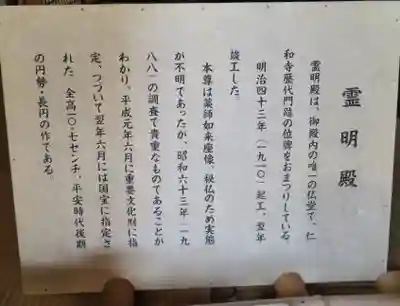 霊明殿
霊明殿は、御殿内の唯一の仏堂で、仁
和寺歴代門跡の位牌をおまつりしている。
明治四十三年（一九一〇）起工、翌年
竣工した。
本尊は薬師如来座像、秘仏のため実態
が不明であったが、昭和六十三年（一九
八八）の調査で貴重なものであることが
わかり、平成元年六月に重要文化財に指
定、つづいて翌年六月には国宝に指定さ
れた。全高一〇・七センチ、平安時代後期
の円勢・長円の作である。